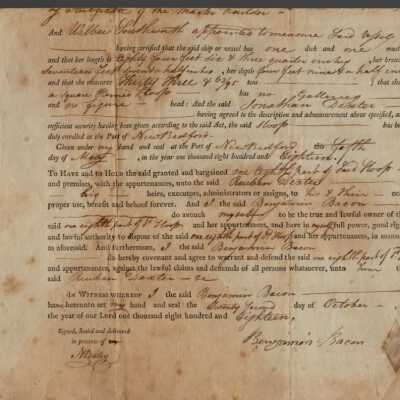 of a certificate of the Master builder
And Wilber Southworth appointed to measure Said Vessel
having certified that the said ship or vessel has one deck and one mast
and that her length is Eighty four feet six & three quarter inches, her breadth
Seventeen feet seven & half inches, her depth four feet nine & a half inches
and that she measures Thirty three & tons that she
a square Sterned Sloop has no Galleries
and no figure head: And the said Jonathan Dexter
having agreed to the description and admeasurement above specified, and
sufficient security having been given according to the said Act, the said Sloop has been
duly enrolled at the Port of New Bedford.
Given under my hand and seal at the Port of New Bedford this Tenth
day of May in the year one thousand eight hundred and Eighteen,
To Have and to Hold the said granted and bargained one eighth part of Said Sloop
and premises, with the appurtenances, unto the said Reuben Dexter
his heirs, executors, administrators or assigns, to his & their only
proper use, benefit and behoof forever. And I the said Benjamin Bacon
do avouch myself to be the true and lawful owner of the
said one eighth part of Sd Sloop and appurtenances, and have in myself full power, good right
and lawful authority to dispose of the said one eighth part of Sd Sloop and her appurtenances, in manner
as aforesaid: And furthermore, I the said Benjamin Bacon
do hereby covenant and agree to warrant and defend the said one eighth part of Sd
and appurtenances, against the lawful claims and demands of all persons whatsoever, unto him the
said Reuben Dexter
In Witness whereof I the said Benjamin Bacon
have hereunto set my hand and seal the Twenty Second day of October
the year of our Lord one thousand eight hundred and Eighteen,
Signed, Sealed and delivered
in presence of
Benjamin Bacon